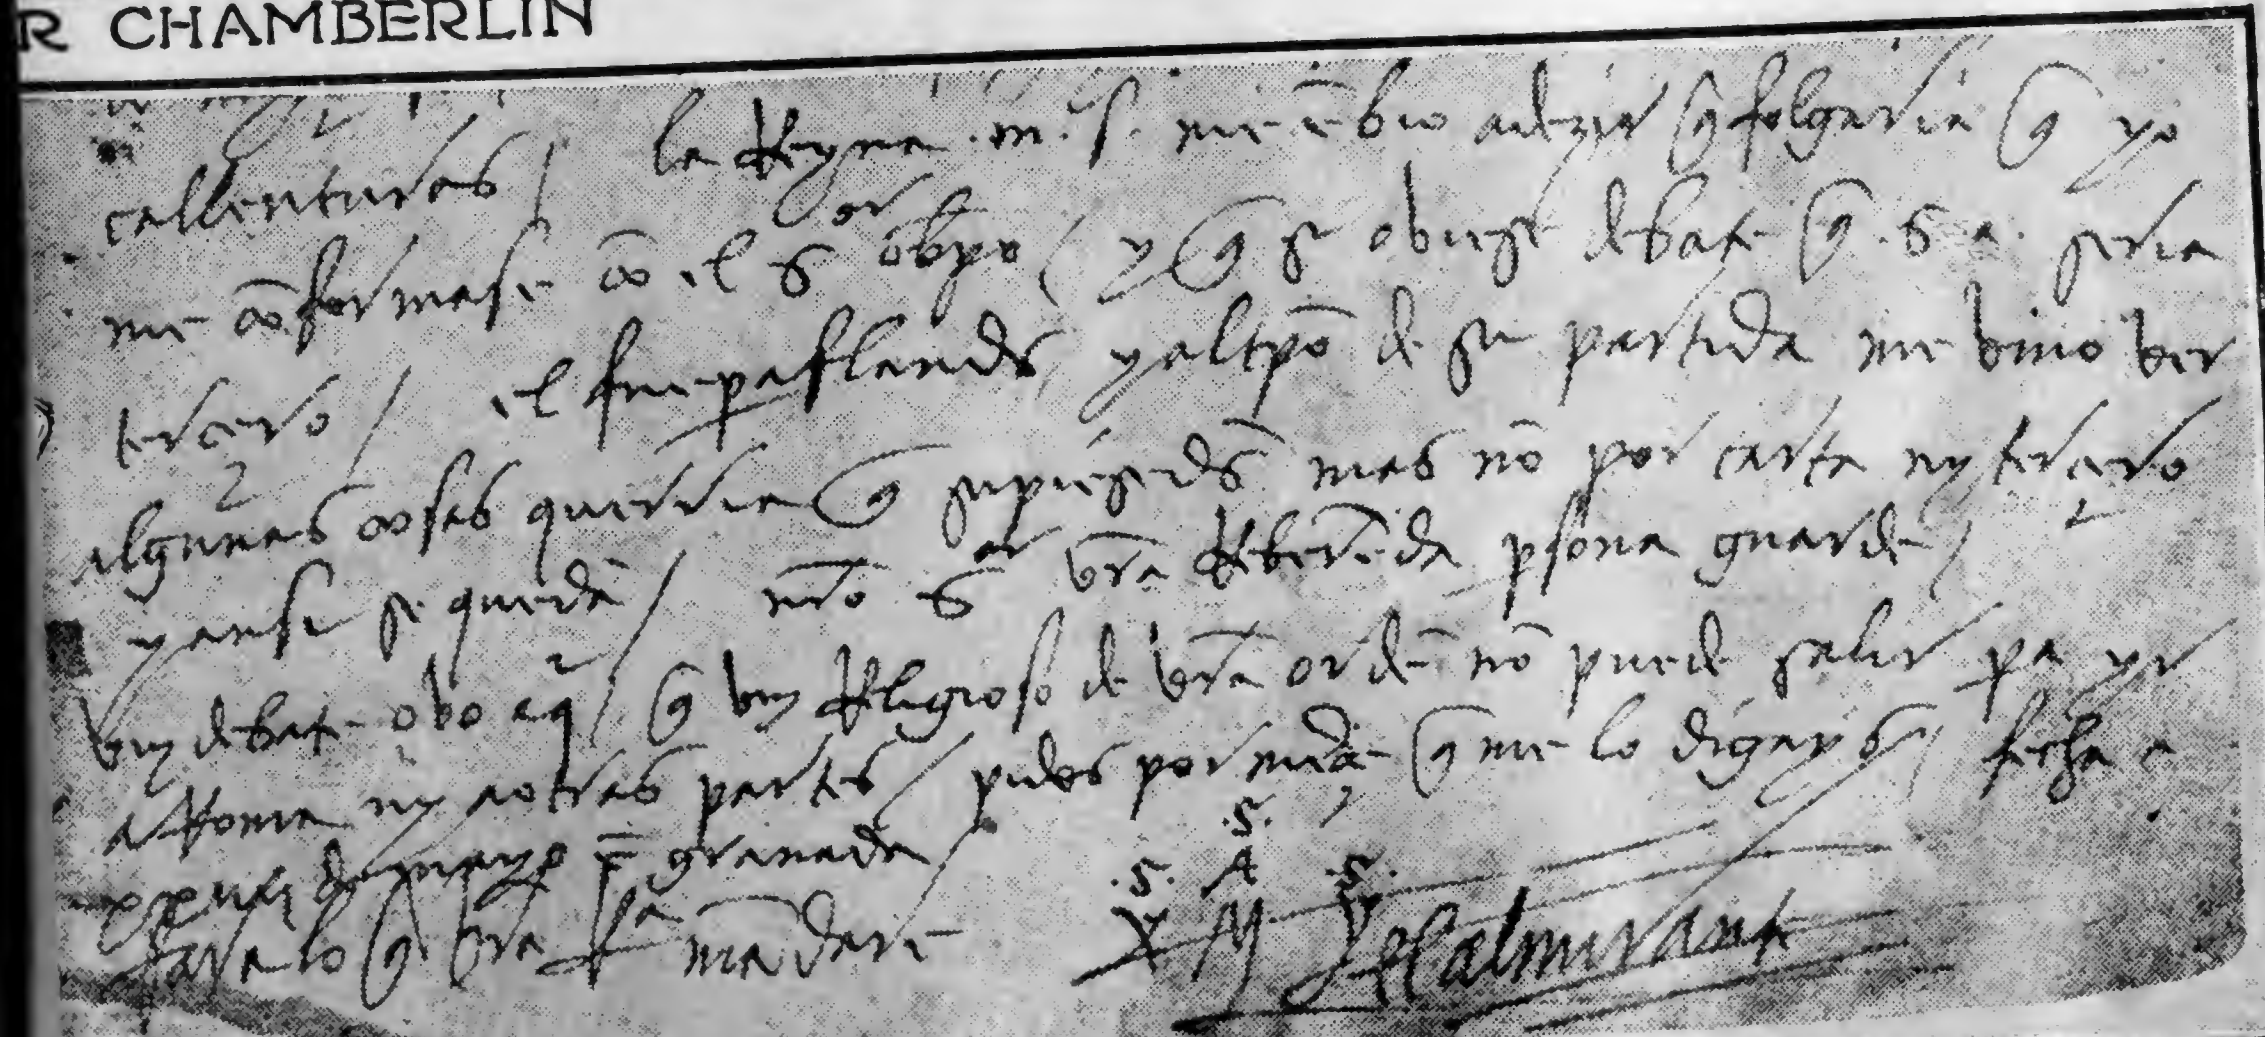 R CHAMBERLIN
callenturas / la Reyna .m. s. me ẽbio a dezir q̃ folgaria q̃ yo
me cõformase cõ el sor obpo / y q̃ si obiese debate q̃ .s. a. seria
tercero / el fue pa flandes y al tpõ de su partida me vino ver
algunas cosas querria q̃ supiesedes mas nõ por carta ny tercero
y ansi se quedã / nro sor vra Reberẽda psona guarde /
vn debate obo aq̃ / q̃ vn Religioso de vra ordẽ nõ puede salir pa yr
a Roma ny a otras partes / pidos por mẽd q̃ me lo digays / fecha a
de mayo ẽ granada /
fara lo q̃ vra mãdare
.S.
.S. A .S.
X M Y
el almirante